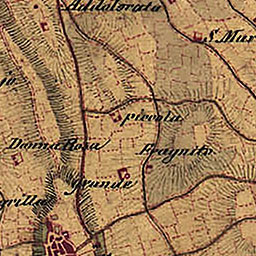 Addolorata
S. Mar
piccola
Donna Rosa
Fragnito
grande